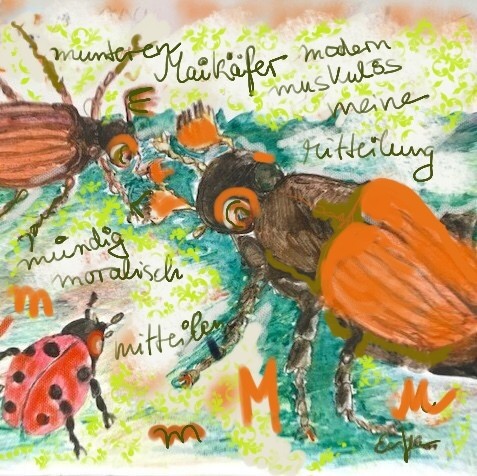 munteren Maikäfer
modern
muskulös
meine
mitteilung
mündig
moralisch
m
mitteilen
M
M
m